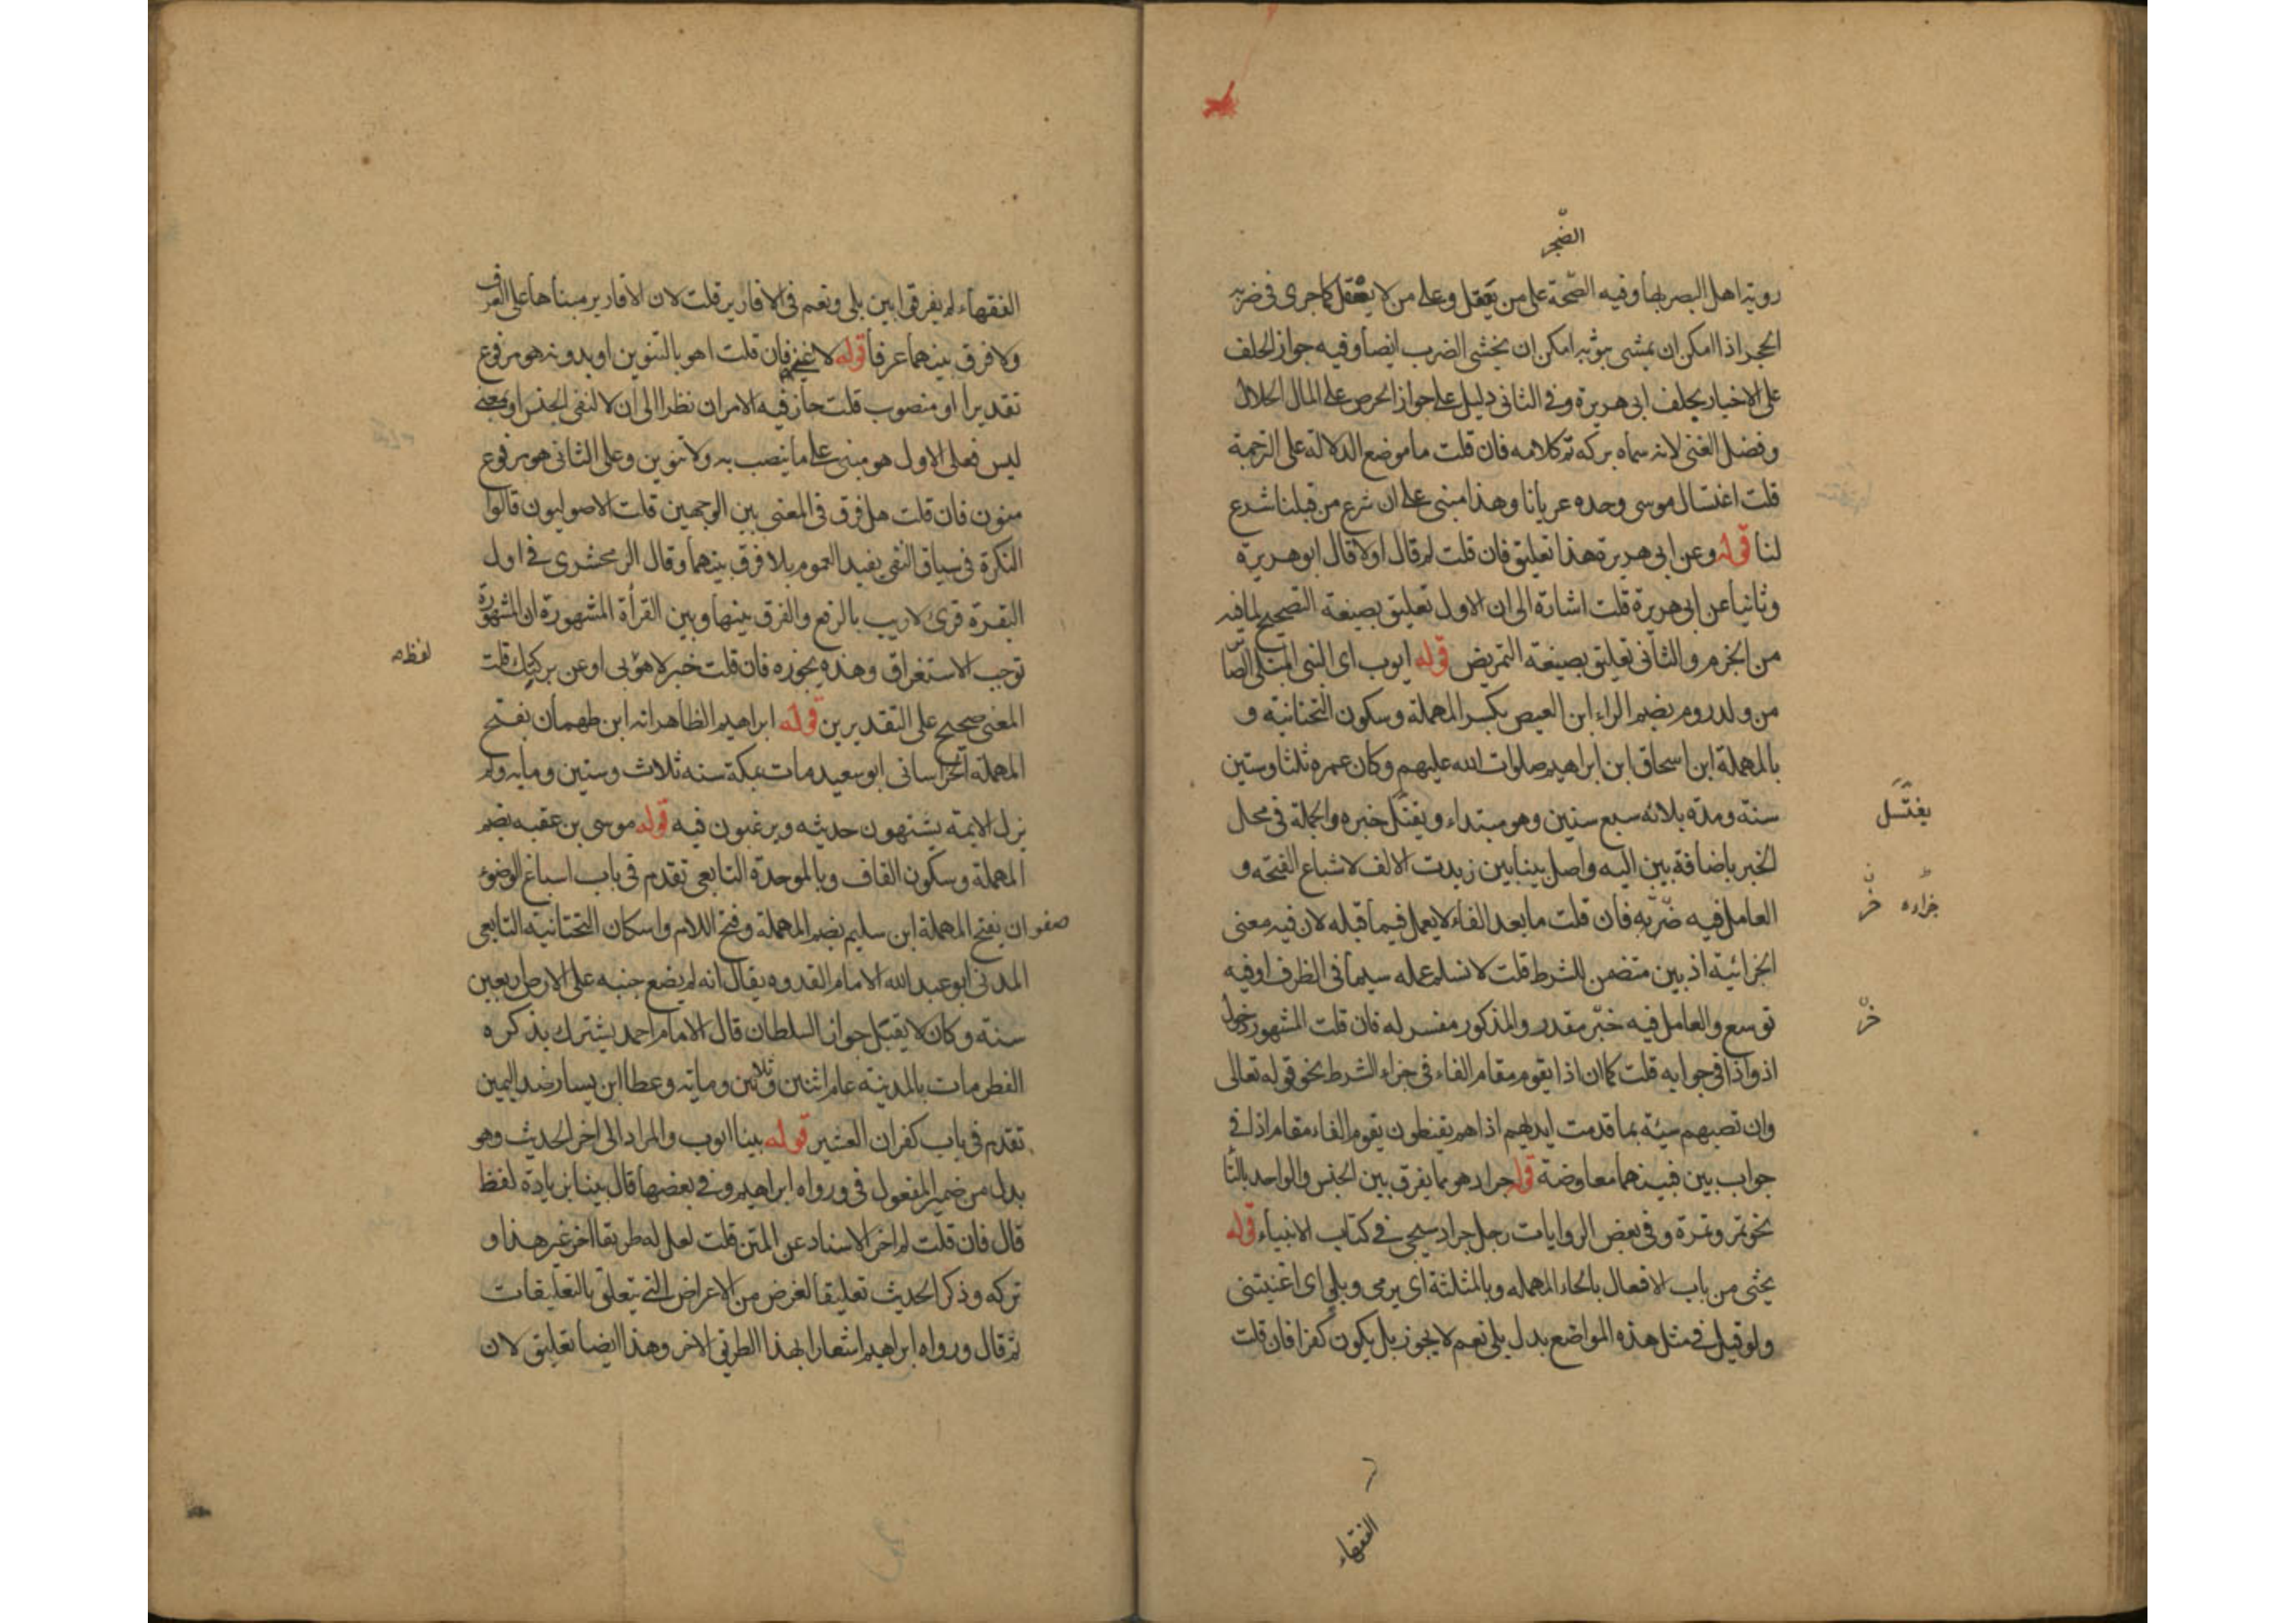 الضجر
روية اهل البصر بها وفيه الصحة على من يعقل وعلى من لا يعقل كما جرى فى ضربه
الحجر اذا امكن ان يمشى بثوبه امكن ان يخشى الضرب ايضا وفيه جواز الحلف
على الاخبار بحلف ابى هريرة وفى الثانى دليل على جواز الحرص على المال الحلال
وفضل الغنى لانه سماه بركه تم كلامه فان قلت ما موضع الدلالة على الترجمة
قلت اغتسال موسى وحده عريانا وهذا مبنى على ان شرع من قبلنا شرع
لنا قوله وعن ابى هريرة هذا تعليق فان قلت لم قال اولا قال ابو هريرة
وثانيا عن ابى هريرة قلت اشارة الى ان الاول تعليق بصيغة التصحيح لما فيه
من الجزم والثانى تعليق بصيغة التمريض قوله ايوب اى النبى المبتلى الصا
من ولد روم بضم الراء ابن العيص بكسر المهملة وسكون التحتانية و
بالمهملة ابن اسحاق ابن ابراهيم صلوات الله عليهم وكان عمره ثلثا وستين
سنة ومدة بلائه سبع سنين وهو مبتداء ويغتسل خبره والجملة فى محل
يغتسل
الخبر باضافة بين اليه واصل بينا بين زيدت الالف لاشباع الفتحه و
العامل فيه ضربه فان قلت ما بعد الفاء لا يعمل فيما قبله لان فيه معنى
خر جراده
الجزائية اذ بين متضمن للشرط قلت لا نسلم عمله سيما فى الظرف او فيه
توسع والعامل فيه خبر مقدر والمذكور مفسر له فان قلت المشهور دخول
خر
اذ واذا فى جوابه قلت كما ان اذا يقوم مقام الفاء فى جزاء الشرط نحو قوله تعالى
وان تصبهم سيئة بما قدمت ايديهم اذا هم يقنطون يقوم الفاء مقام اذا فى
جواب بين فبينهما معاوضة قوله جراد هو مما يفرق بين الجنس والواحد بالتا
نحو تمر وتمرة وفى بعض الروايات رجل جراد سيجى فى كتاب الانبياء قوله
يحثى من باب الافعال بالحاء المهمله وبالمثلثة اى يرمى وبلى اى اغنيتنى
ولو قيل فى مثل هذه المواضع بدل بلى نعم لا يجوز بل يكون كفرا فان قلت
الفقهاء
الفقهاء لم يفرقوا بين بلى ونعم فى الاقارير قلت لان الاقارير مبناها على العرف
ولا فرق بينهما عرفا قوله لا غنى فان قلت اهو بالتنوين او بدونه هو مرفوع
تقديرا او منصوب قلت جاز فيه الامران نظرا الى ان لا لنفى الجنس او بمعنى
ليس فعلى الاول هو مبنى على ما ينصب به ولا تنوين وعلى الثانى هو مرفوع
منون فان قلت هل فرق فى المعنى بين الوجهين قلت الاصوليون قالوا
النكرة فى سياق النفى يفيد العموم بلا فرق بينهما وقال الزمخشرى فى اول
البقرة قرئ لا ريب بالرفع والفرق بينها وبين القرأة المشهورة ان المشهورة
توجب الاستغراق وهذه يجوزه فان قلت خبر لا هو بى او عن بركتك قلت
لفظه
المعنى صحيح على التقديرين قوله ابراهيم الظاهر انه ابن طهمان بفتح
المهملة الخراسانى ابو سعيد مات بمكة سنه ثلاث وستين ومايه ولم
يزل الايمة يشتهون حديثه ويرغبون فيه قوله موسى بن عقبه بضم
المهملة وسكون القاف وبالموحدة التابعى تقدم فى باب اسباغ الوضوء
صفوان بفتح المهملة ابن سليم بضم المهملة وفتح اللام واسكان التحتانية التابعى
المدنى ابو عبد الله الامام القدوه يقال انه لم يضع جنبه على الارض اربعين
سنة وكان لا يقبل جوائز السلطان قال الامام احمد يشترك بذكره
القطر مات بالمدينة عام اثنين وثلاثين وماية وعطا ابن يسار ضد اليمين
تقدم فى باب كفران العشير قوله بينا ايوب والمراد الى اخر الحديث وهو
بدل من ضمير المفعول فى ورواه ابراهيم وفى بعضها قال بينا بزيادة لفظ
قال فان قلت لم اخر الاسناد عن المتن قلت لعل له طريقا اخر غير هذا و
تركه وذكر الحديث تعليقا لغرض من الاغراض التى يتعلق بالتعليقات
ثم قال ورواه ابراهيم اشعارا بهذا الطريق الاخر وهذا ايضا تعليق لان